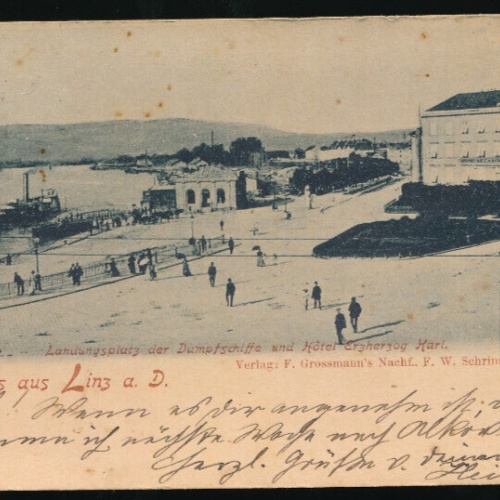 Landungsplatz der Dampfschiffe und Hôtel Erzherzog Karl.
Verlag: F. Grossmann's Nachf., F. W. Schrin
s aus Linz a. D.
Wenn es dir angenehm ist,
ich nächste Woche nach
Herzl. Grüße v.